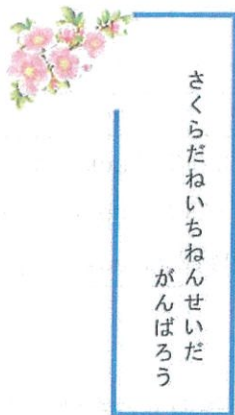 さくらだねいちねんせいだ
がんばろう